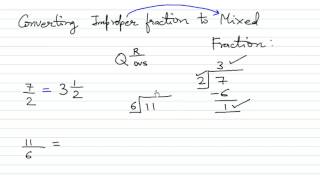 Converting Improper fraction to Mixed
Fraction:
Q R/DVS
7/2 = 3 1/2
3
2 7
-6
1
6 11
11/6 =